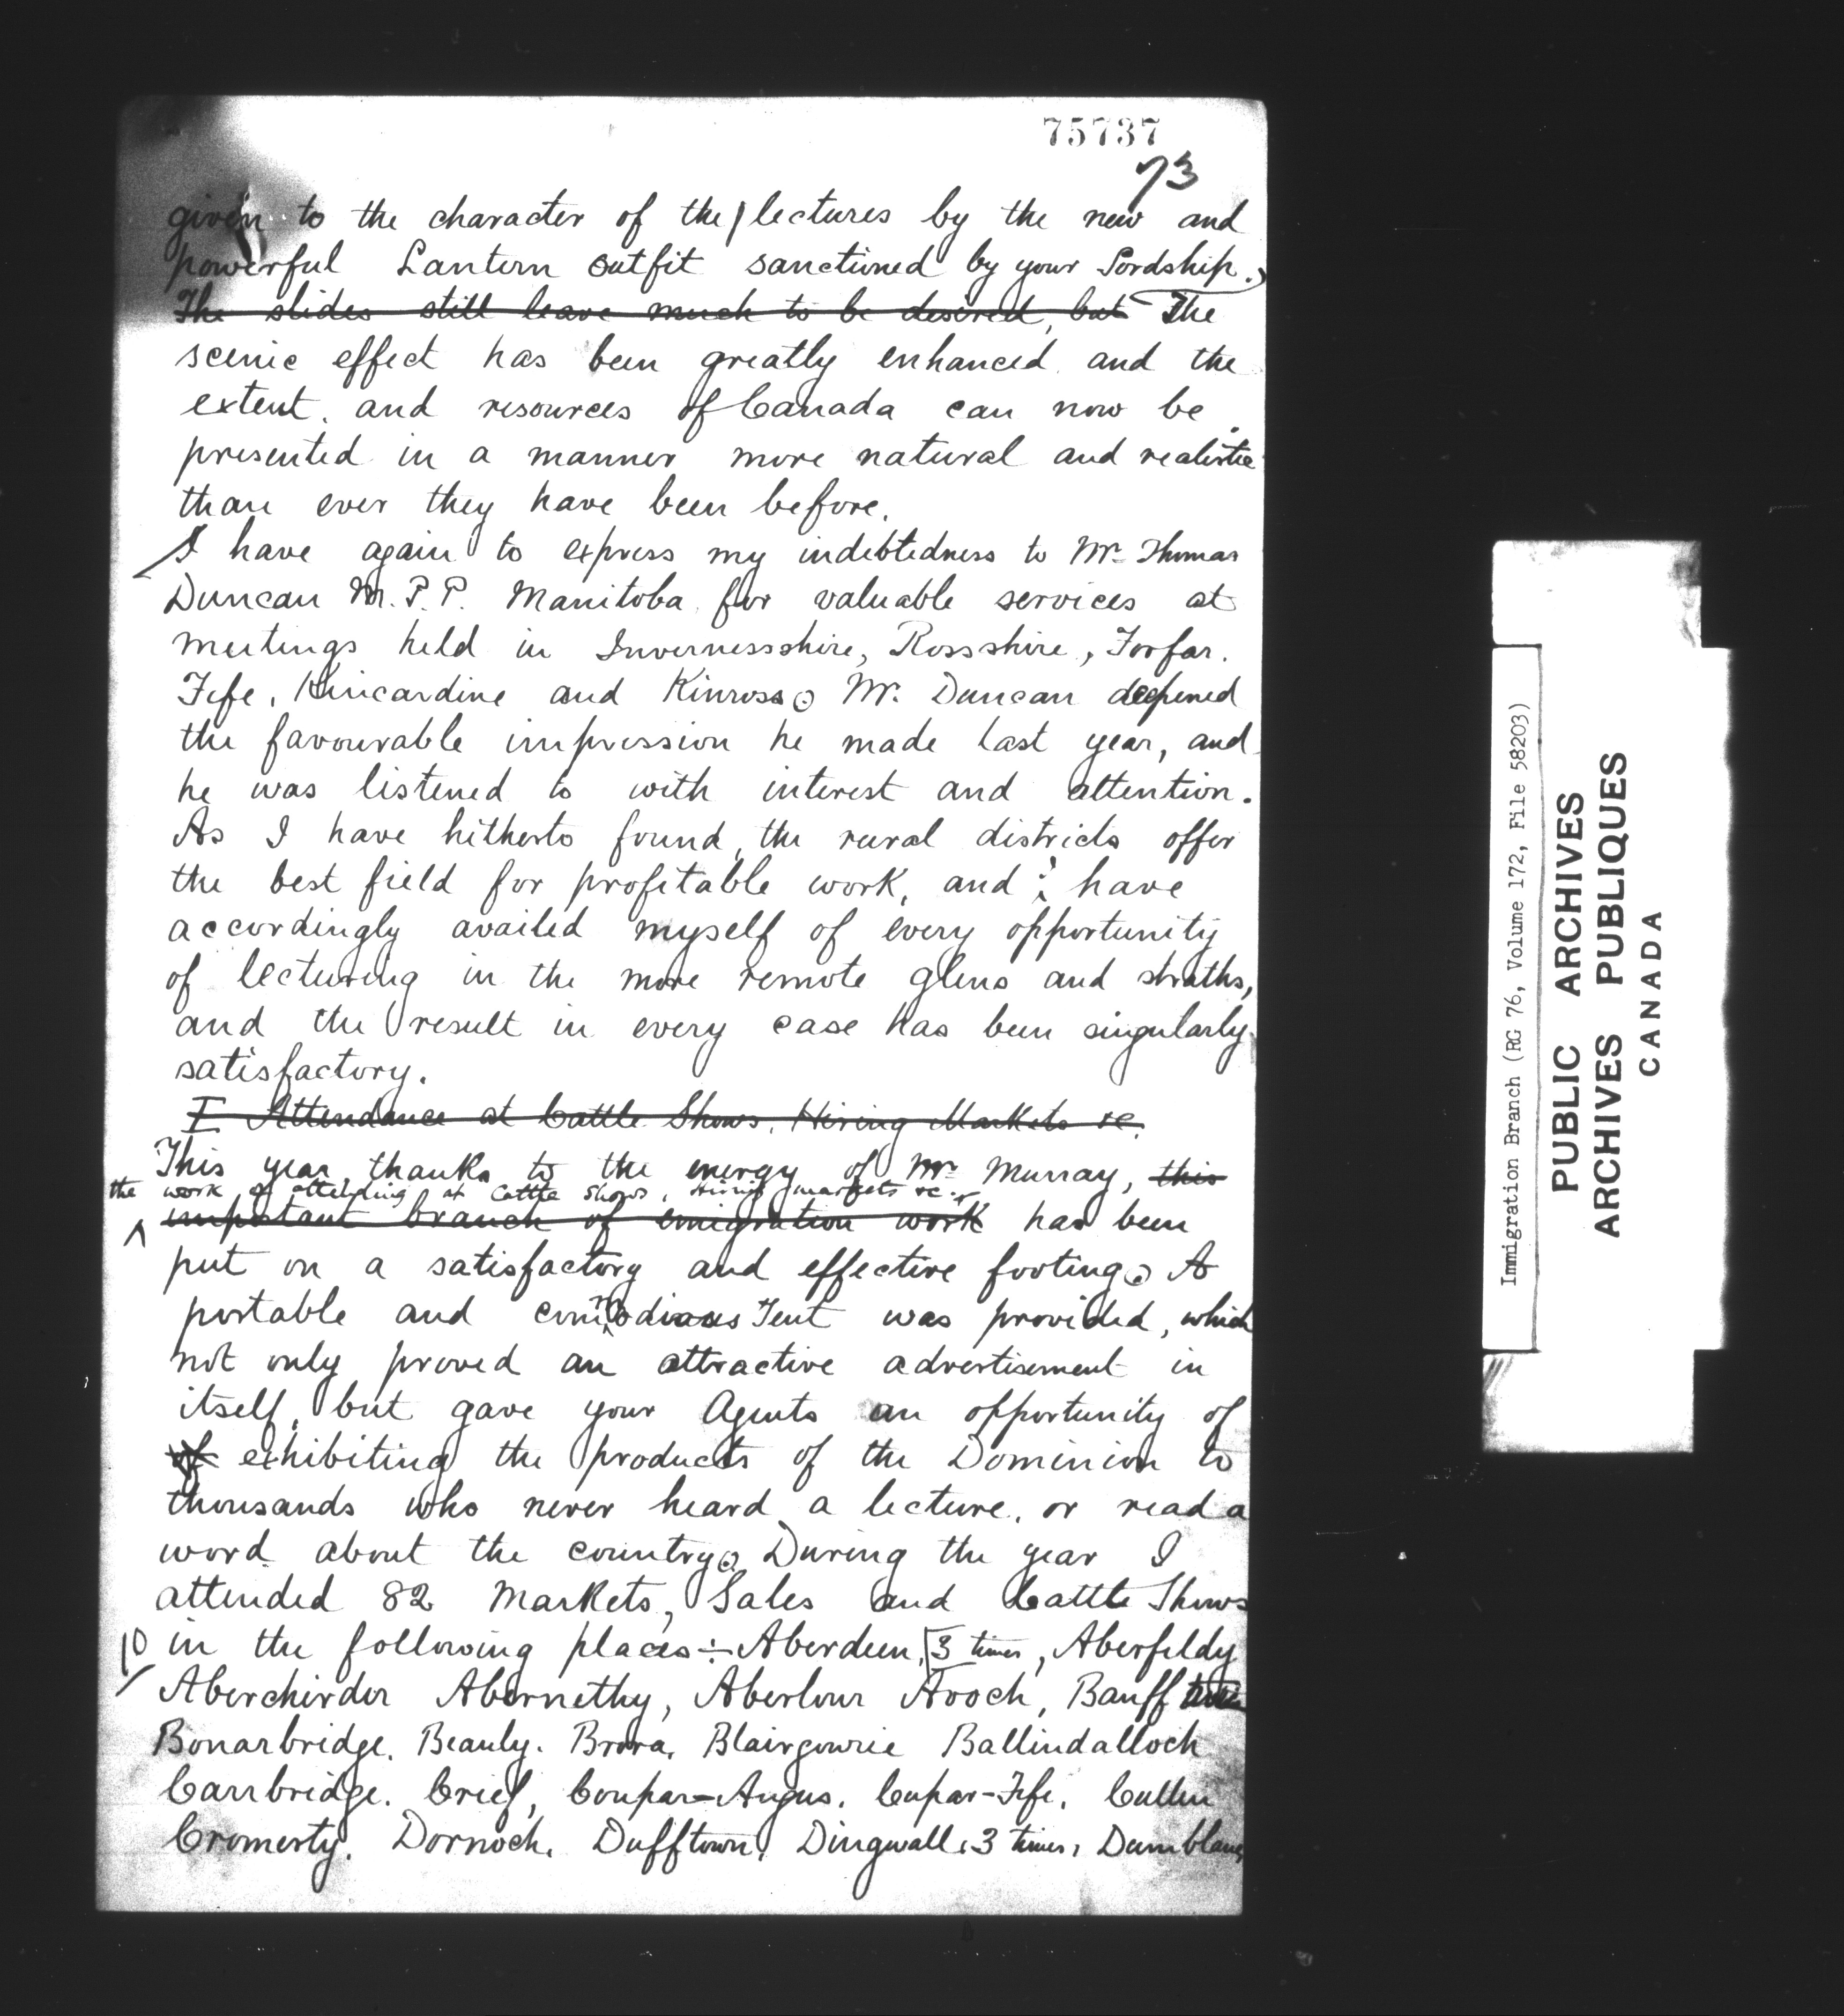 75737
73
given to the character of the lectures by the new and
powerful Lantern outfit sanctioned by your Lordship.
The slides still leave much to be desired, but The
scenic effect has been greatly enhanced and the
extent and resources of Canada can now be
presented in a manner more natural and realistic
than ever they have been before.
I have again to express my indebtedness to Mr. Thomas
Duncan M.P.P. Manitoba for valuable services at
meetings held in Invernessshire, Rossshire, Forfar.
Fife, Kincardine and Kinross. Mr. Duncan deepened
the favourable impression he made last year, and
he was listened to with interest and attention.
As I have hitherto found, the rural districts offer
the best field for profitable work, and i have
accordingly availed myself of every opportunity
of lecturing in the more remote glens and straths,
and the result in every case has been singularly
satisfactory.
I Attendance at Cattle Shows, Hiring Markets &c.
This year, thanks to the energy of Mr Murray, this
the work of attending at Cattle Shows, Hiring markets &c.
important branch of emigration work has been
put on a satisfactory and effective footing. A
portable and commodious Tent was provided, which
not only proved an attractive advertisement in
itself, but gave your Agents an opportunity of
of exhibiting the products of the Dominion to
thousands who never heard a lecture, or read a
word about the country. During the year I
attended 82 Markets, Sales and Cattle Shows
10 in the following places:- Aberdeen, 3 times, Aberfeldy
Aberchirder Abernethy, Aberlour Avoch, Banff
Bonarbridge. Beauly. Brora, Blairgowrie Ballindalloch
Carrbridge. Crief, Coupar-Angus. Cupar-Fife, Cullen
Cromerty. Dornoch, Dufftown, Dingwall, 3 times, Dumblane
Immigration Branch (RG 76, Volume 172, File 58203)
PUBLIC ARCHIVES
ARCHIVES PUBLIQUES
CANADA